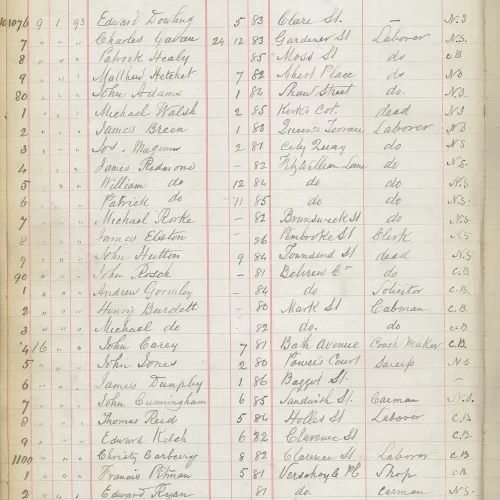 101076 9 1 93 Edward Dowling 5 83 Clare St. — N.S
7 " " " Charles Gavan 24 12 83 Gardener St Laborer N.S.
8 " " " Patrick Healy 85 Moss St do C.B
9 " " " Matthew Hetchet 7 82 Albert Place do N.S
80 " " " John Adams 1 82 Shaw Street do. N.S
1 " " " Michael Walsh 2 85 Kirk's Cot. dead N.S
2 " " " James Breen 1 83 Queen's Terrace Laborer N.S
3 " " " Jos. Maguire 2 81 City Quay do N.S
4 " " " James Redmond — 82 Fitzwilliam Lane do N.S.
5 " " " William do 12 84 do do N.S
6 " " " Patrick do 11 85 do do N.S.
7 " " " Michael Rorke — 82 Brunswick St do N.S.
8 " " " James Elston 86 Pembroke St Clerk N.S.
9 " " " John Hutton 9 84 Townsend St dead N.S.
90 " " " John Rosch — 81 do C.B
1 " " " Andrew Gormley — 84 do Solicitor C.B.
2 " " " Henry Burdett — 80 Mark St Cabman C.B.
3 " " " Michael do 82 do. do C.B
4 16 " " John Carey 7 81 Bath Avenue Coach Maker C.B.
5 " " John Jones 2 80 Power's Court Sweep N.S
6 " " James Dunphy 1 86 Baggot St. —
7 " " John Cunningham 6 85 Sandwith St. Carman N.S.
8 " " Thomas Reid 5 84 Holles St Laborer C.B
9 " " Edward Kech 6 82 Clarence St C.B.
1100 " " Christy Carberry 8 82 Clarence St Laborer C.B
1 " " Francis Pitman 5 81 Verschoyle Pl Shop C.B
2 " " Edward Ryan 81 do. Carman N.S